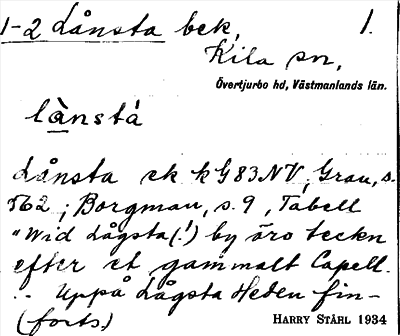 1-2 Lånsta bck, 1.
Kila sn,
Övertjurbo hd, Västmanlands län.
lànstá
Lånsta ek kG83NV, Grau, s.
562; Borgman, s. 9, Tabell
"Wid Lågsta(!) by äro teckn
efter et gammalt Capell.
.. Uppå Lågsta Heden fin-
(forts.) HARRY STÅHL 1934